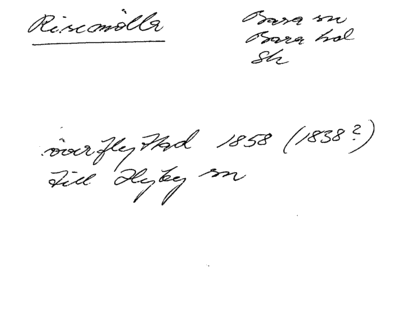 Risemölla
Bara sn
Bara hd
Sk
överflyttad 1858 (1838?)
till Hyby sn